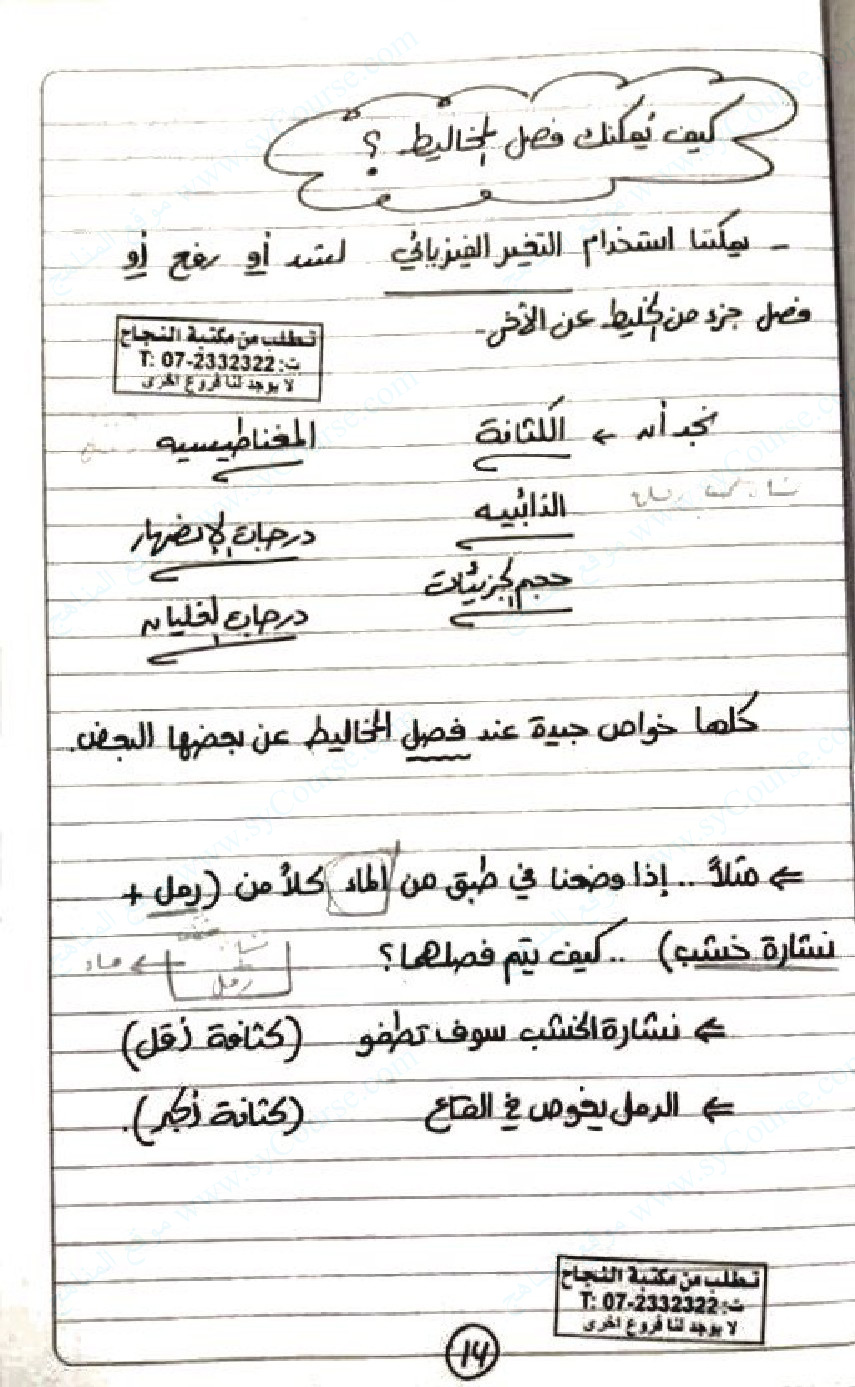 كيف يمكنك فصل المخاليط ؟
- يمكننا استخدام التغير الفيزيائي لشد أو رفع أو
فصل جزء من الخليط عن الآخر.
تطلب من مكتبة النجاح
ت: T: 07-2332322
لا يوجد لنا فروع اخرى
نجد أن ← الكثافة المغناطيسيه
الذائبيه درجات الإنصهار
حجم الجزيئات درجات الغليان
كلها خواص جيدة عند فصل المخاليط عن بعضها البعض.
⇐ مثلاً .. إذا وضعنا في طبق من الماء كلاً من (رمل +
نشارة خشب) .. كيف يتم فصلهما ؟
رمل
ماء
⇐ نشارة الخشب سوف تطفو (كثافة أقل)
⇐ الرمل يغوص في القاع (كثافة أكبر).
تطلب من مكتبة النجاح
ت: T: 07-2332322
لا يوجد لنا فروع اخرى
14